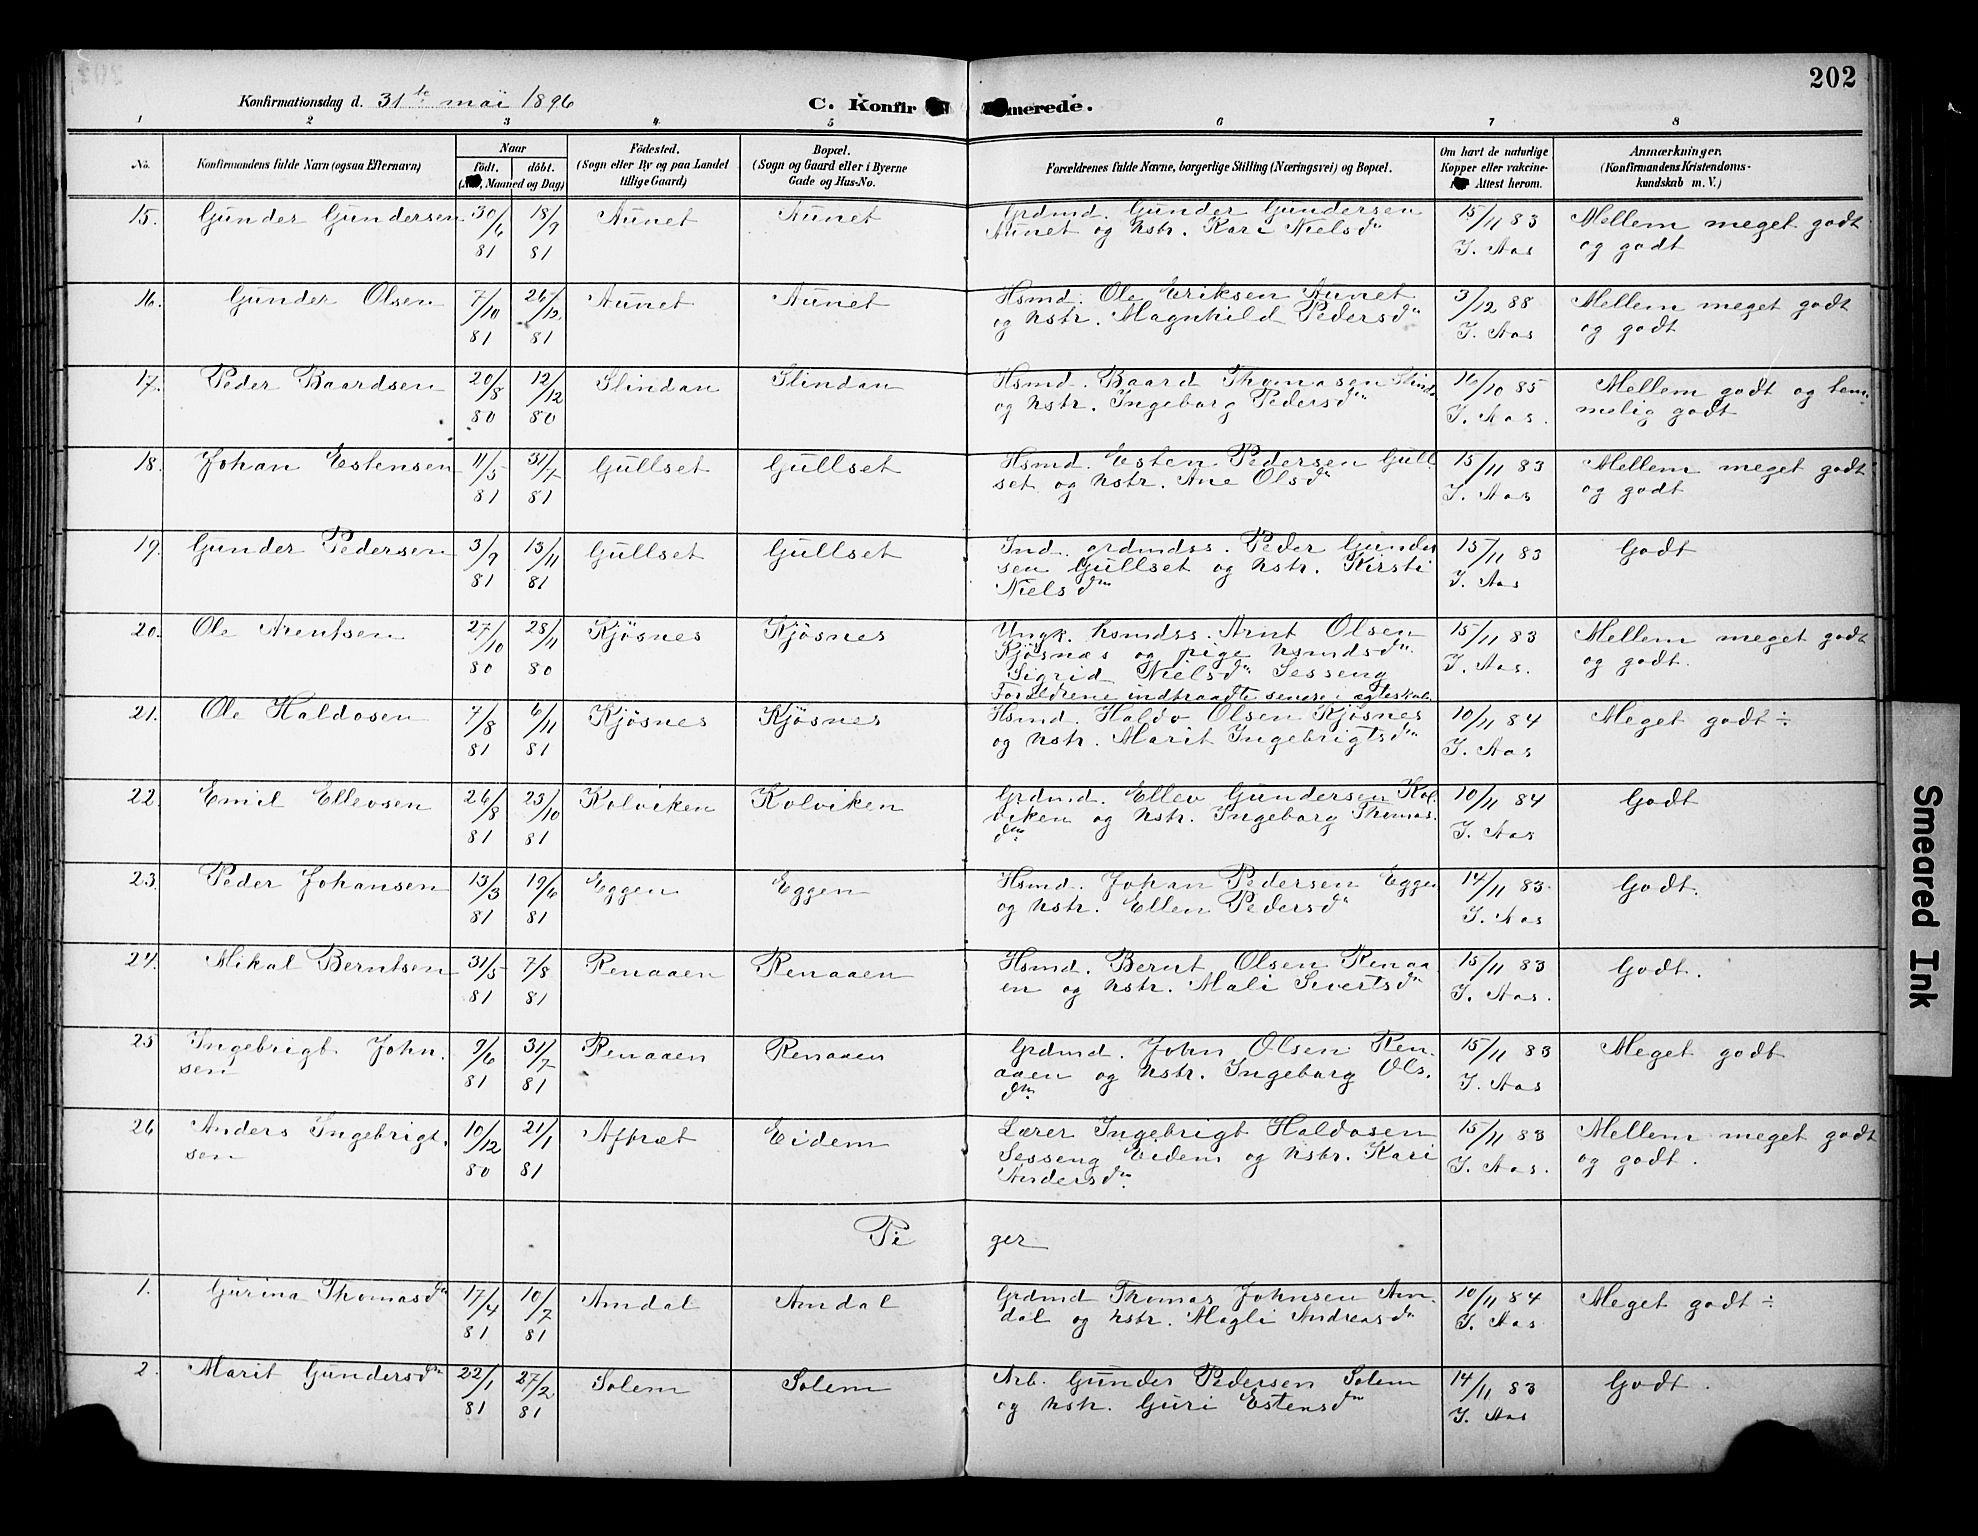 202
Konfirmationsdag d. 31te mai 1896
C. Konfir merede.
1 2 3 4 5 6 7 8
No. Konfirmandens fulde Navn (ogsaa Efternavn) Naar født. døbt. (Aar, Maaned og Dag) Fødested. (Sogn eller By og paa Landet tillige Gaard) Bopæl. (Sogn og Gaard eller i Byerne Gade og Hus-No. Forældrenes fulde Navne, borgerlige Stilling (Næringsvei) og Bopæl. Om havt de naturlige Kopper eller vakcine- Attest herom. Anmærkninger. (Konfirmandens Kristendoms-kundskab m. V.)
15. Gunder Gundersen 30/6 81 18/9 81 Aunet Aunet Grdmd. Gunder Gundersen
Aunet og Hstr. Kari Nielsdtr 15/11 83 J. Aas Mellem meget godt
og godt
16. Gunder Olsen 7/10 81 26/12 81 Aunet Aunet Hsmd. Ole Eriksen Aunet
og Hstr. Magnhild Pedersdtr 3/12 88 J. Aas Mellem meget godt
og godt
17. Peder Baardsen 20/8 80 12/12 80 Slindan Slindan Hsmd. Baard Thomasen Slinda
og Hstr. Ingeborg Pedersdtr 16/10 85 J. Aas. Mellem godt og tem-
melig godt
18. Johan Estensen 11/5 81 31/7 81 Gullset Gullset Hsmd. Esten Pedersen Gull
set og Hstr. Ane Olsdtr 15/11 83 J. Aas Mellem meget godt
og godt
19. Gunder Pedersen 3/9 81 13/11 81 Gullset Gullset Ind. grdmdss. Peder Gunder
sen Gullset og Hstr. Kirsti
Nielsdtr 15/11 83 J. Aas Godt
20. Ole Arentsen 27/10 80 28/11 80 Kjøsnes Kjøsnes Ungk. hsmdss. Arnt Olsen
Kjøsnæs og pige hsmdsdtr.
Sigrid Nielsdtr Sesseng
Forældrene indtraadte senere i ægteskab. 15/11 83 J. Aas. Mellem meget godt
og godt.
21. Ole Haldosen 7/8 81 6/11 81 Kjøsnes Kjøsnes Hsmd. Haldo Olsen Kjøsnes
og Hstr. Marit Ingebrigtsdtr 10/11 84 J. Aas Meget godt ÷
22. Emil Ellevsen 26/8 81 23/10 81 Kolviken Kolviken Grdmd. Ellev Gundersen Kol-
viken og Hstr. Ingeborg Thomas-
dtr. 10/11 84 J. Aas Godt
23. Peder Johansen 13/3 81 19/6 81 Eggen Eggen Hsmd. Johan Pedersen Eggen
og Hstr. Ellen Pedersdtr 14/11 83. J. Aas Godt.
24. Mikal Berntsen 31/5 81 7/8 81 Renaaen Renaaen Hsmd. Bernt Olsen Renaa
en og Hstr. Mali Sivertsdtr 15/11 83 J. Aas. Godt.
25 Ingebrigt John-
sen 9/6 81 31/7 81 Renaaen Renaaen Grdmd. John Olsen Ren-
aaen og Hstr. Ingeborg Ols-
dtr. 15/11 83 J. Aas Meget godt
26 Anders Ingebrigt-
sen 10/12 80 21/1 81 Aftræt Eidem Lærer Ingebrigt Haldosen
Sesseng Eidem og Hstr. Kari
Andersdtr. 15/11 83 J. Aas. Mellem meget godt
og godt.
Pi ger
1. Gurina Thomasdtr 17/4 81 10/7 81 Amdal Amdal Grdmd Thomas Johnsen Am-
dal og Hstr. Magli Andreasdtr 10/11 84 J. Aas Meget godt ÷
2. Marit Gundersdtr 22/1 81 27/2 81 Solem Solem Arb. Gunder Pedersen Solem
og Hstr. Guri Estensdtr 14/11 83 J. Aas Godt.
Smeared Ink